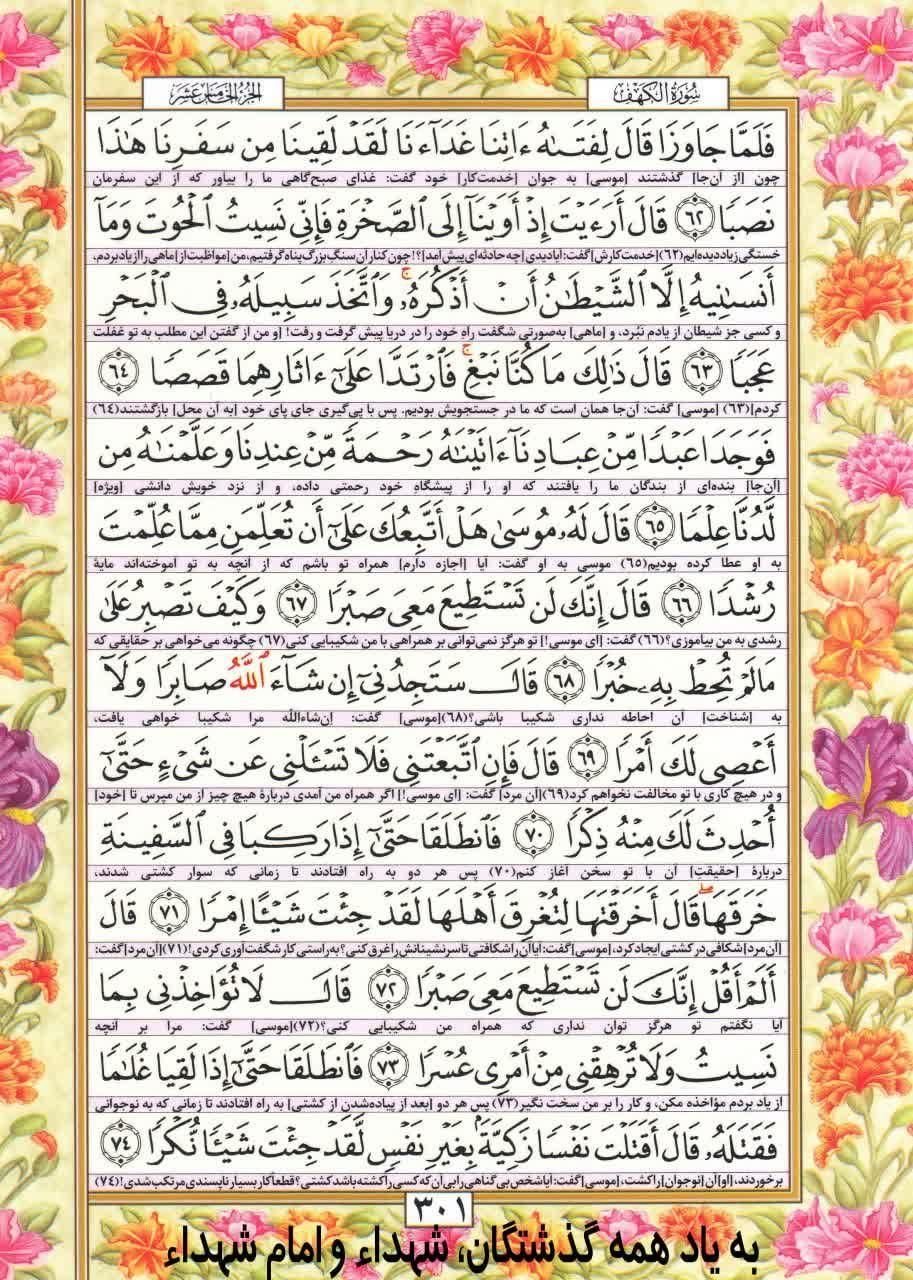 سُورَةُ الْكَهْف
الجُزءُ الخَامِسَ عَشَر
فَلَمَّا جَاوَزَا قَالَ لِفَتَىٰهُ ءَاتِنَا غَدَآءَنَا لَقَدْ لَقِينَا مِن سَفَرِنَا هَٰذَا
چون [از آن‌جا] گذشتند [موسی] به جوان [خدمت‌کار] خود گفت: غذای صبح‌گاهی ما را بیاور که از این سفرمان
نَصَبًا ٦٢ قَالَ أَرَءَيْتَ إِذْ أَوَيْنَآ إِلَى الصَّخْرَةِ فَإِنِّي نَسِيتُ الْحُوتَ وَمَآ
خستگی زیاد دیده‌ایم (۶۲) [خدمت‌کارش] گفت: آیا دیدی [چه حادثه‌ای پیش آمد]؟! چون کنار آن سنگ بزرگ پناه گرفتیم، من [مواظبت از] ماهی را از یاد بردم،
أَنسَىٰنِيهُ إِلَّا الشَّيْطَٰنُ أَنْ أَذْكُرَهُۥ ۚ وَاتَّخَذَ سَبِيلَهُۥ فِي الْبَحْرِ
و کسی جز شیطان از یادم نبُرد، و [ماهی] به‌صورتی شگفت راه خود را در دریا پیش گرفت و رفت! [و من از گفتن این مطلب به تو غفلت
عَجَبًا ٦٣ قَالَ ذَٰلِكَ مَا كُنَّا نَبْغِ ۚ فَارْتَدَّا عَلَىٰٓ ءَاثَارِهِمَا قَصَصًا ٦٤
کردم] (۶۳) [موسی] گفت: آن‌جا همان است که ما در جستجویش بودیم. پس با پی‌گیری جای پای خود [به آن محل] بازگشتند (۶۴)
فَوَجَدَا عَبْدًا مِّنْ عِبَادِنَآ ءَاتَيْنَٰهُ رَحْمَةً مِّنْ عِندِنَا وَعَلَّمْنَٰهُ مِن
[آن‌جا] بنده‌ای از بندگان ما را یافتند که او را از پیشگاهِ خود رحمتی داده، و از نزد خویش دانشی [ویژه]
لَّدُنَّا عِلْمًا ٦٥ قَالَ لَهُۥ مُوسَىٰ هَلْ أَتَّبِعُكَ عَلَىٰٓ أَن تُعَلِّمَنِ مِمَّا عُلِّمْتَ
به او عطا کرده بودیم (۶۵) موسی به او گفت: آیا [اجازه دارم] همراه تو باشم که از آنچه به تو آموخته‌اند مایهٔ
رُشْدًا ٦٦ قَالَ إِنَّكَ لَن تَسْتَطِيعَ مَعِيَ صَبْرًا ٦٧ وَكَيْفَ تَصْبِرُ عَلَىٰ
رشدی به من بیاموزی؟ (۶۶) گفت: [ای موسی!] تو هرگز نمی‌توانی بر همراهی با من شکیبایی کنی (۶۷) چگونه می‌خواهی بر حقایقی که
مَا لَمْ تُحِطْ بِهِۦ خُبْرًا ٦٨ قَالَ سَتَجِدُنِيٓ إِن شَآءَ اللَّهُ صَابِرًا وَلَآ
به [شناخت] آن احاطه نداری شکیبا باشی؟ (۶۸) [موسی] گفت: إن‌شاءالله مرا شکیبا خواهی یافت،
أَعْصِي لَكَ أَمْرًا ٦٩ قَالَ فَإِنِ اتَّبَعْتَنِي فَلَا تَسْـَٔلْنِي عَن شَيْءٍ حَتَّىٰٓ
و در هیچ کاری با تو مخالفت نخواهم کرد (۶۹) [آن مرد] گفت: [ای موسی!] اگر همراه من آمدی دربارهٔ هیچ چیز از من مپرس تا [خود]
أُحْدِثَ لَكَ مِنْهُ ذِكْرًا ٧٠ فَانطَلَقَا حَتَّىٰٓ إِذَا رَكِبَا فِي السَّفِينَةِ
دربارهٔ [حقیقتِ] آن با تو سخن آغاز کنم (۷۰) پس هر دو به راه افتادند تا زمانی که سوار کشتی شدند،
خَرَقَهَا ۖ قَالَ أَخَرَقْتَهَا لِتُغْرِقَ أَهْلَهَا لَقَدْ جِئْتَ شَيْـًٔا إِمْرًا ٧١ قَالَ
[آن مرد] شکافی در کشتی ایجاد کرد، [موسی] گفت: آیا آن را شکافتی تا سرنشینانش را غرق کنی؟ به‌راستی کار شگفت‌آوری کردی! (۷۱) [آن مرد] گفت:
أَلَمْ أَقُلْ إِنَّكَ لَن تَسْتَطِيعَ مَعِيَ صَبْرًا ٧٢ قَالَ لَا تُؤَاخِذْنِي بِمَا
آیا نگفتم تو هرگز توان نداری که همراه من شکیبایی کنی؟ (۷۲) [موسی] گفت: مرا بر آنچه
نَسِيتُ وَلَا تُرْهِقْنِي مِنْ أَمْرِي عُسْرًا ٧٣ فَانطَلَقَا حَتَّىٰٓ إِذَا لَقِيَا غُلَٰمًا
از یاد بردم مؤاخذه مکن، و کار را بر من سخت نگیر (۷۳) پس هر دو [بعد از پیاده‌شدن از کشتی] به راه افتادند تا زمانی که به نوجوانی
فَقَتَلَهُۥ قَالَ أَقَتَلْتَ نَفْسًا زَكِيَّةً بِغَيْرِ نَفْسٍ لَّقَدْ جِئْتَ شَيْـًٔا نُّكْرًا ٧٤
برخوردند، [او] آن [نوجوان] را کشت، [موسی] گفت: آیا شخص بی‌گناهی را بی‌آن‌که کسی را کشته باشد کشتی؟ قطعاً کار بسیار ناپسندی مرتکب شدی! (۷۴)
٣٠١
به یاد همه گذشتگان، شهداء و امام شهداء